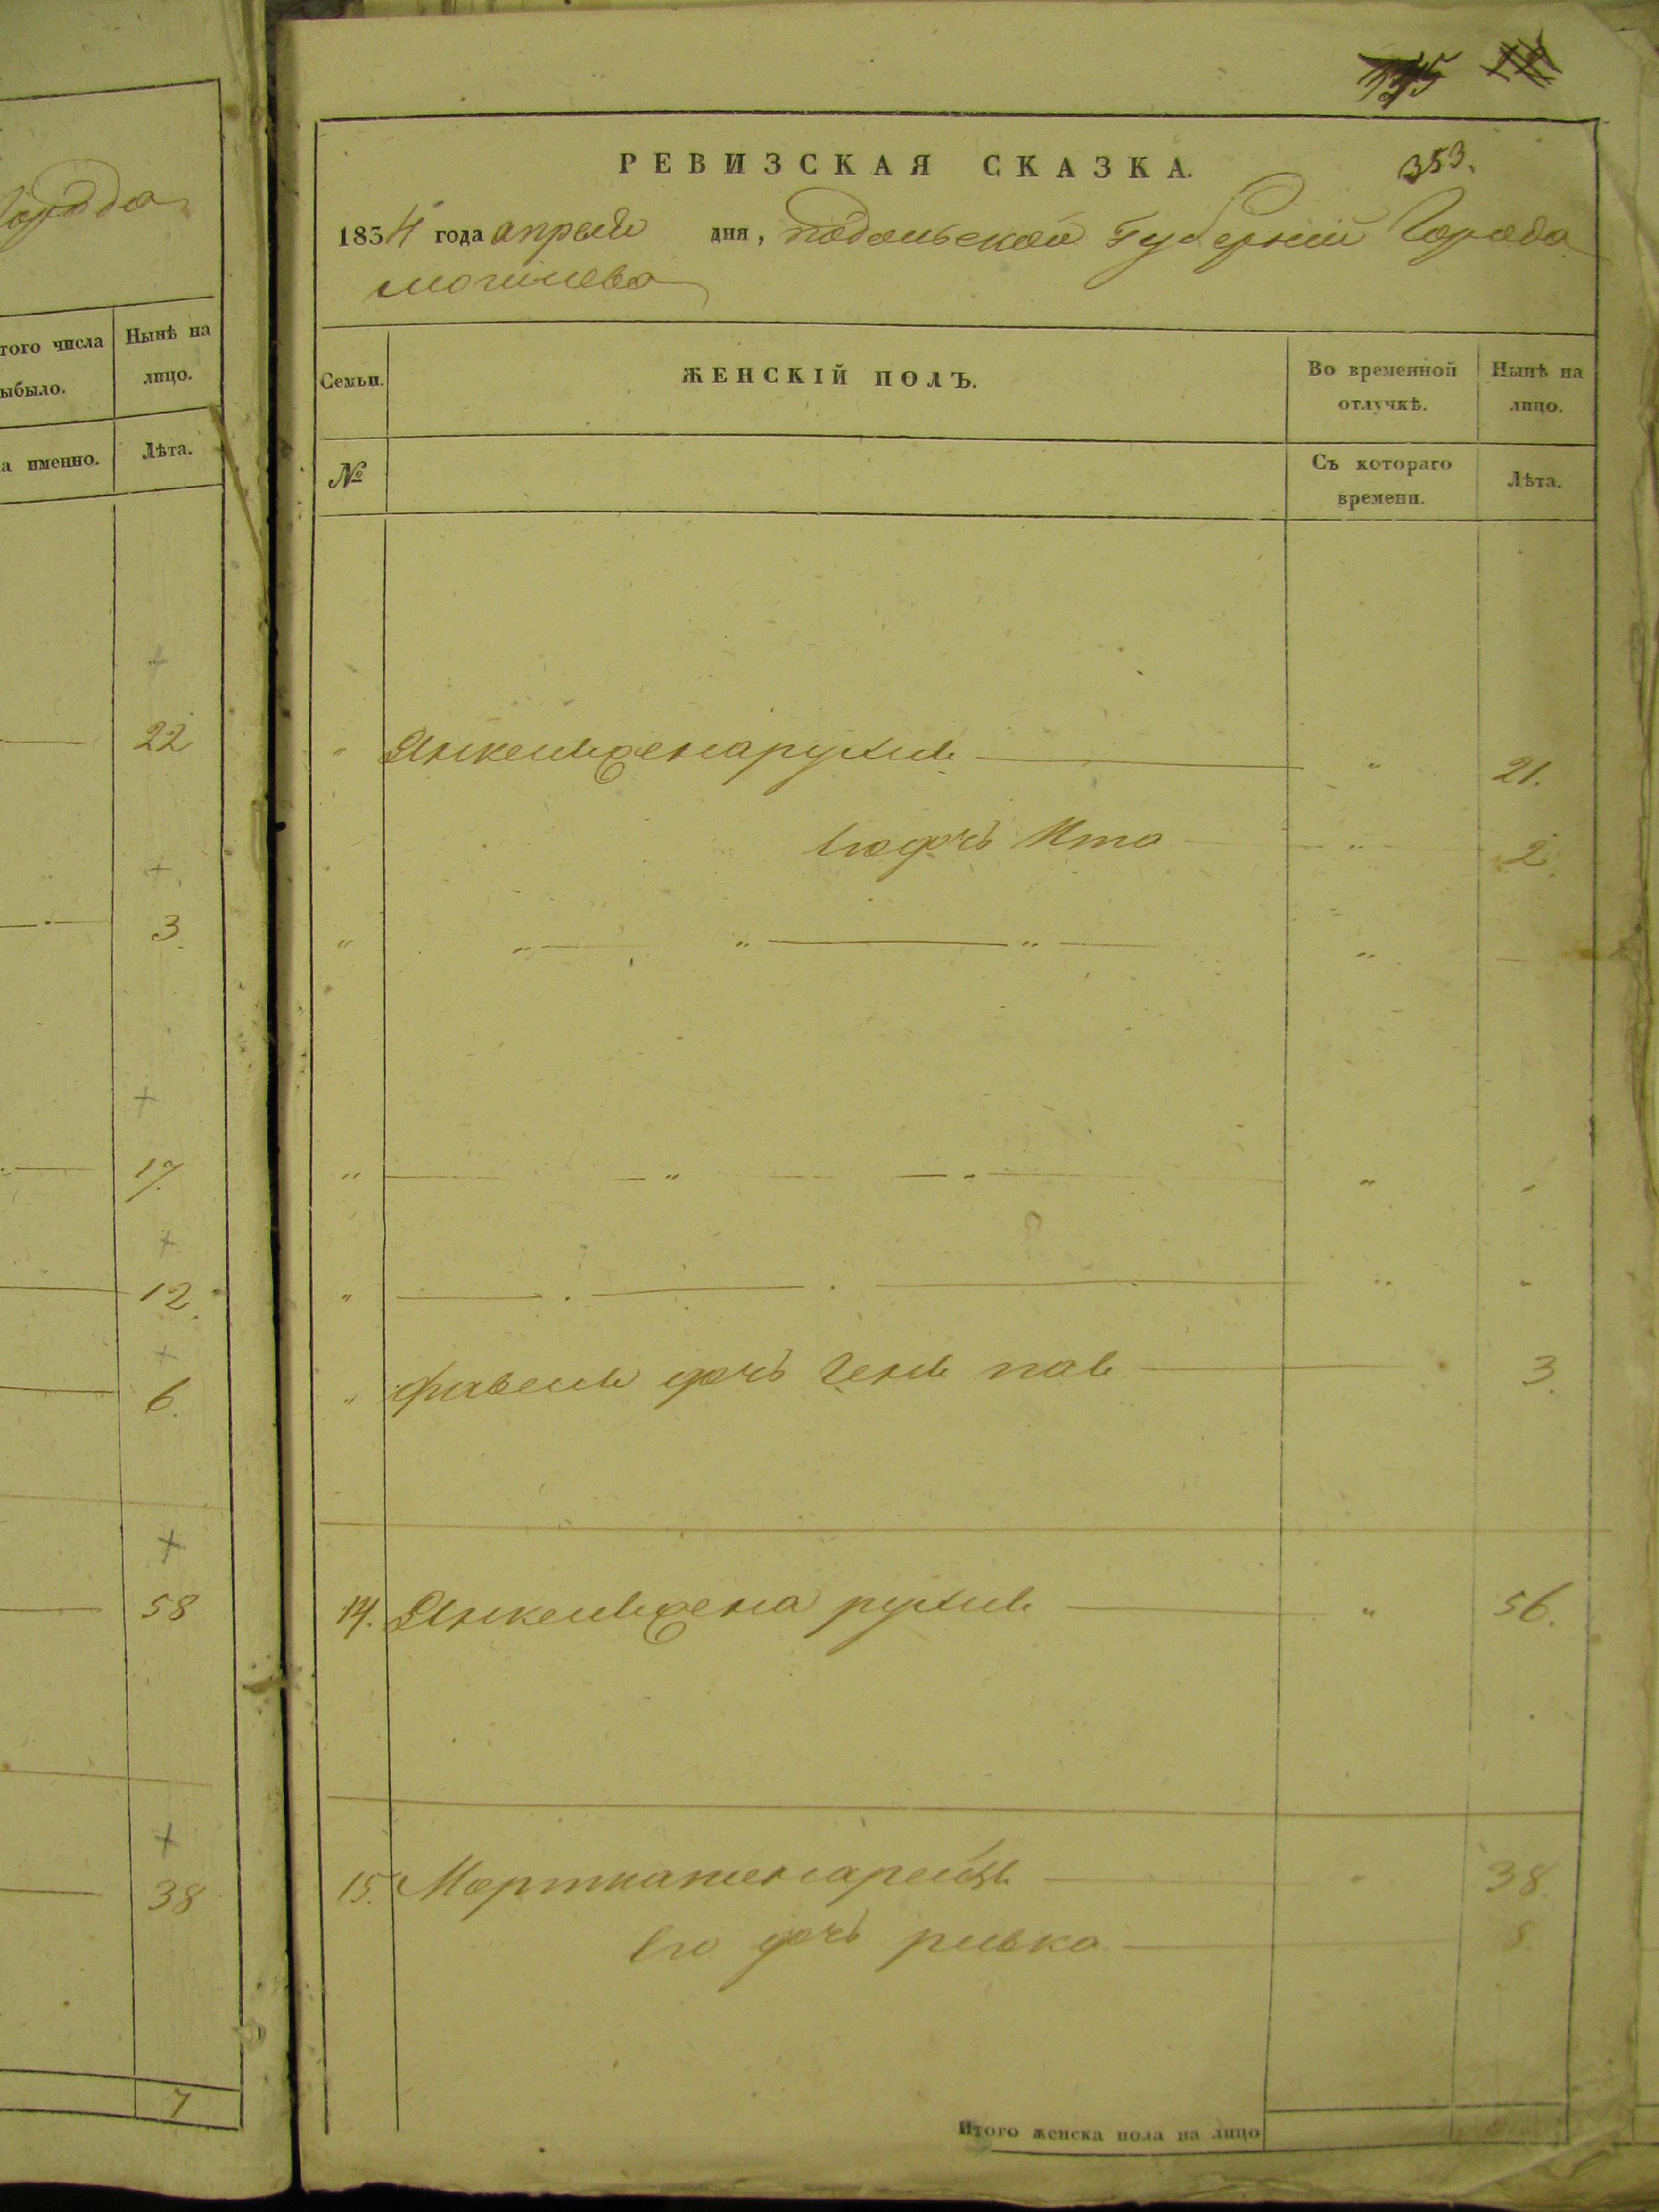 353.
РЕВИЗСКАЯ СКАЗКА.
1834 года апреля дня, подольской Губернии Города
могилева
того числа
ыбыло.
Нынѣ на
лицо.
а именно.
Лѣта.
Семьи.
ЖЕНСКІЙ ПОЛЪ.
Во временной
отлучкѣ.
Нынѣ на
лицо.
№
Съ котораго
времени.
Лѣта.
22
3
17.
12.
6.
58
38
7
Янкеля жена рухля 21.
Его дочь Ита 2.
дочь 3.
14. Янкеля жена рухля 56.
15. 38.
Его дочь ривка 8.
Итого женска пола на лицо